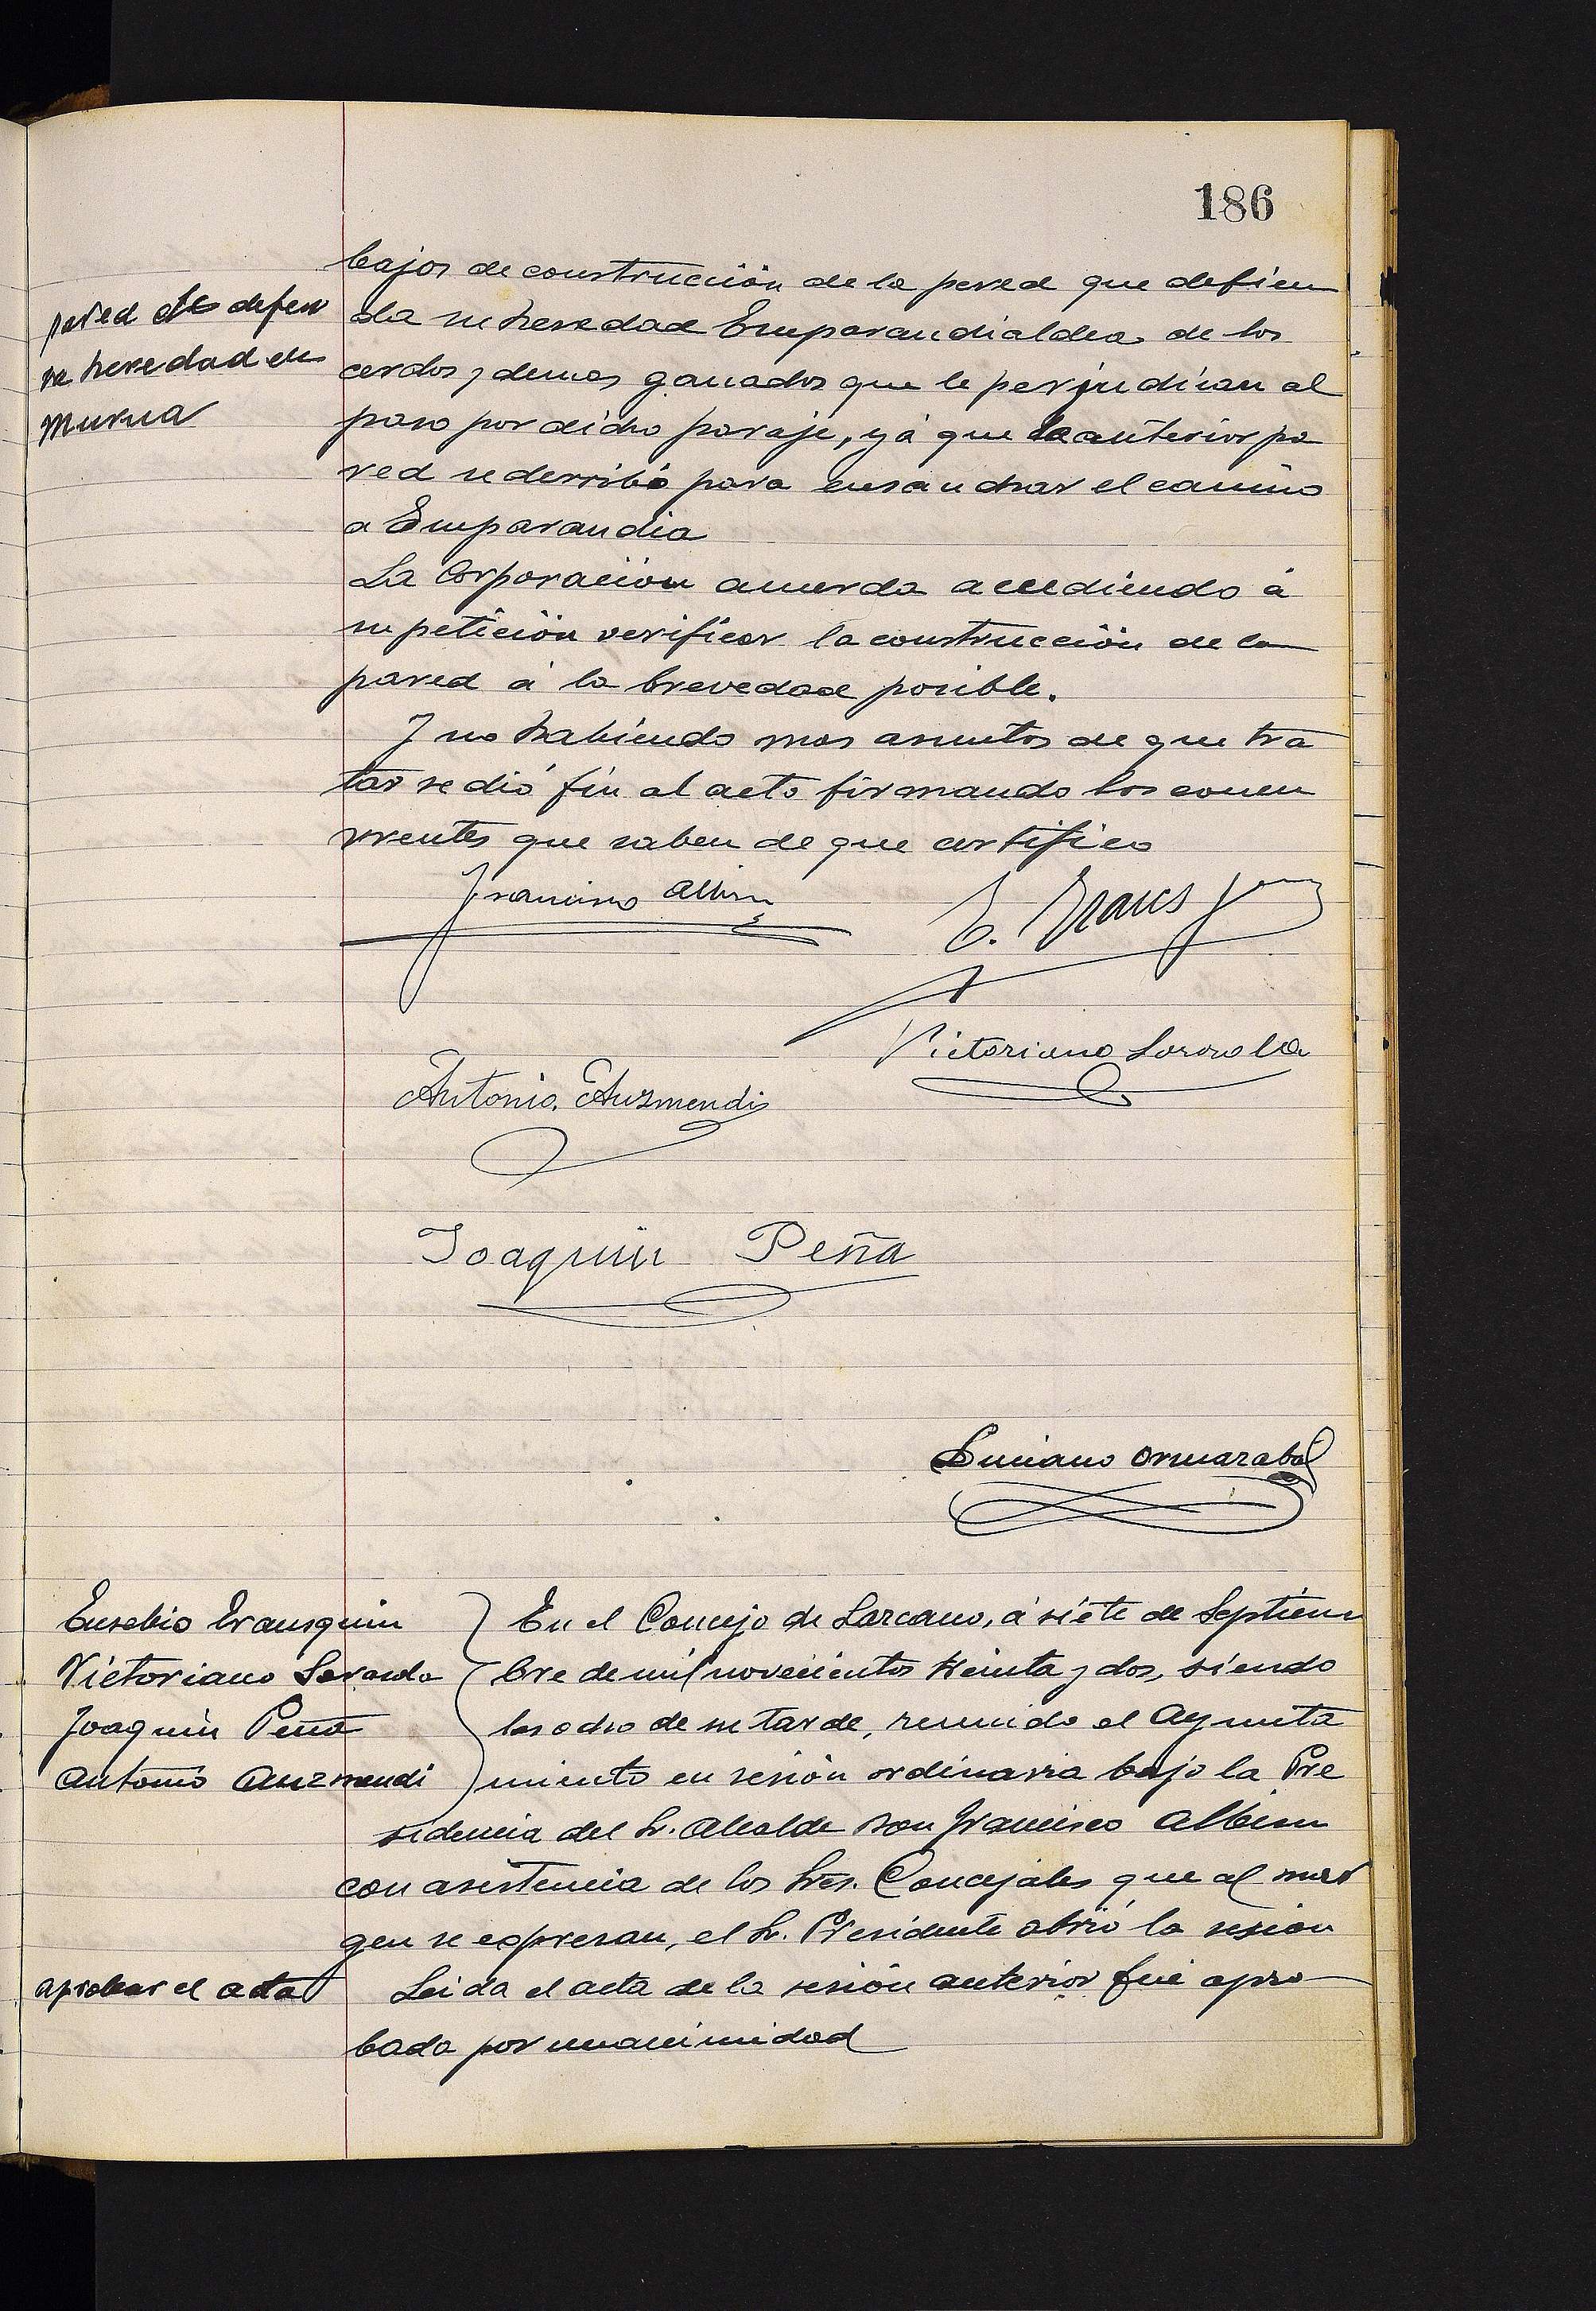 186
bajos de construcción de la pared que defien
da su heredad Emparandialdea de los
cerdos y demas ganados que le perjudican al
paso por dicho paraje, yá que la anterior pa
red se derribó para ensanchar el camino
a Emparandia
pared de defen
sa heredad de
Murua
La Corporación acuerda accediendo á
su petición verificar la construcción de la
pared á la brevedad posible.
Y no habiendo mas asuntos de que tra
tar se dió fin al acto firmando los concu
rrentes que saben de que certifico
Francisco Albisu
E. Iraus
Victoriano Sarasola
Antonio Auzmendi
Joaquín Peña
Luciano Ormazabal
Eusebio Irausquin
Victoriano Sarasola
Joaquin Peña
Antonio Auzmendi
En el Concejo de Lazcano, á siete de Septiem
bre de mil novecientos treinta y dos, siendo
las ocho de su tarde, reunido el Ayunta
miento en sesión ordinaria bajo la Pre
sidencia del Sr. Alcalde Don Francisco Albisu
con asistencia de los Sres. Concejales que al mar
gen se expresan, el Sr. Presidente abrió la sesion
aprobar el acta
Leida el acta de la sesión anterior fué apro
bada por unanimidad